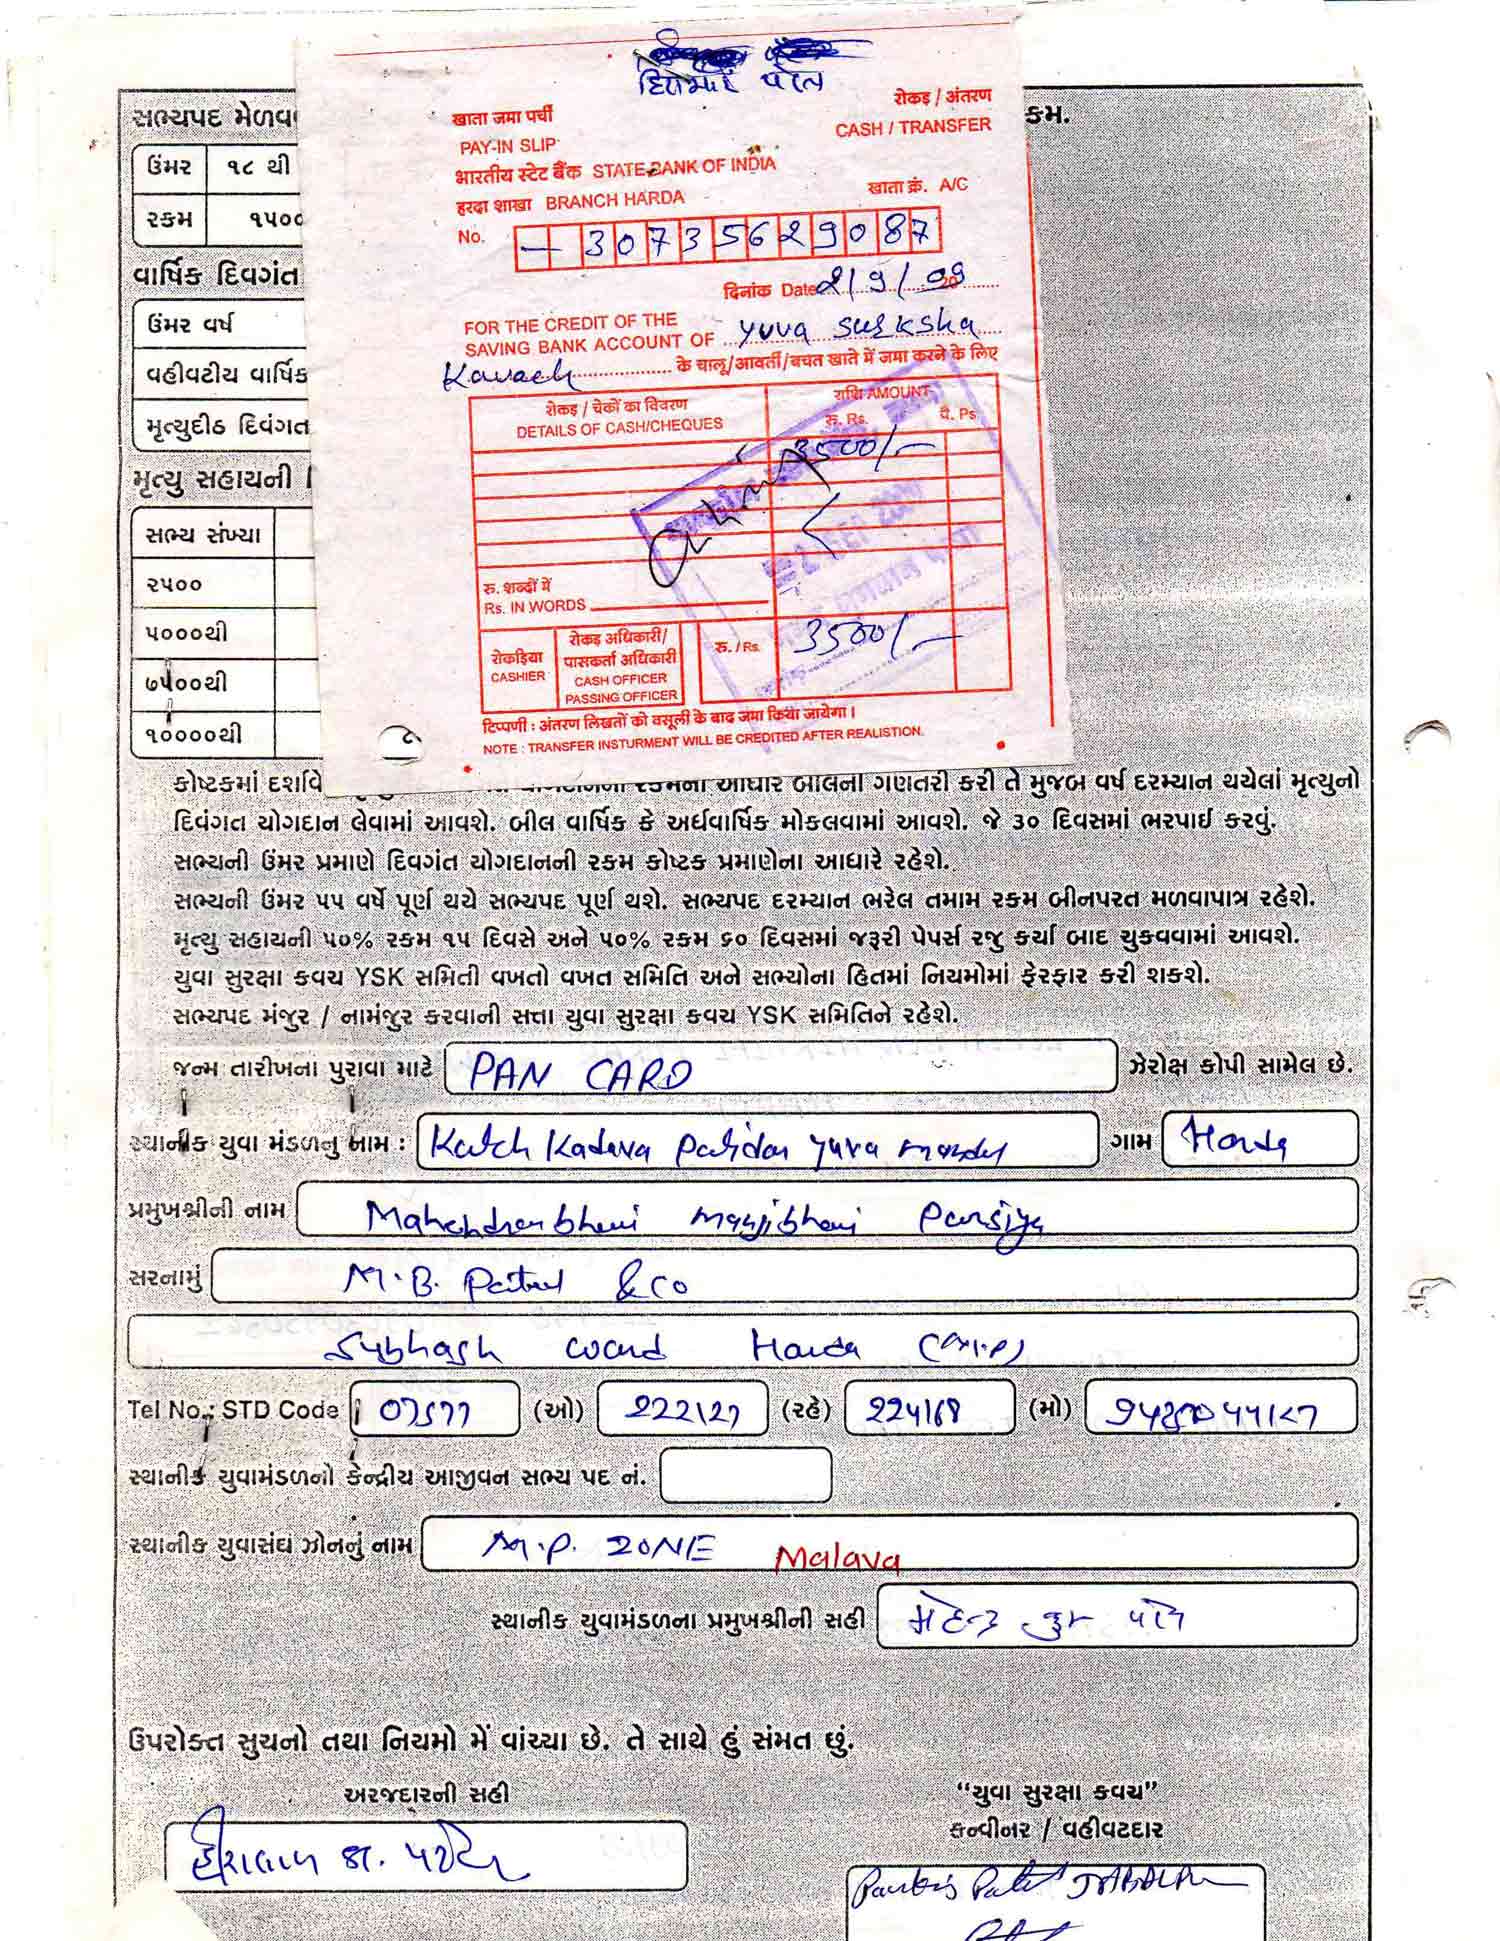 खाता जमा पर्ची
रोकड़ / अंतरण
PAY-IN SLIP
CASH / TRANSFER
भारतीय स्टेट बैंक STATE BANK OF INDIA
हरदा शाखा BRANCH HARDA
खाता क्रं. A/C
No. 30735629087
दिनांक Date 2/9/09
FOR THE CREDIT OF THE
SAVING BANK ACCOUNT OF yuva surksha
Kavach के चालू/आवर्ती/बचत खाते में जमा करने के लिए
रोकड़ / चेकों का विवरण
DETAILS OF CASH/CHEQUES
राशि AMOUNT
रू. Rs. पै. Ps
3500/-
रु. शब्दों में
Rs. IN WORDS
रोकड़िया
CASHIER
रोकड़ अधिकारी/
पासकर्ता अधिकारी
CASH OFFICER
PASSING OFFICER
रु. / Rs. 3500/-
टिप्पणी : अंतरण लिखतों को वसूली के बाद जमा किया जायेगा ।
NOTE : TRANSFER INSTURMENT WILL BE CREDITED AFTER REALISTION.
સભ્યપદ મેળવ
કમ.
ઉંમર ૧૮ થી
રકમ ૧૫૦૦
વાર્ષિક દિવગંત
ઉંમર વર્ષ
વહીવટીય વાર્ષિક
મૃત્યુદીઠ દિવંગત
મૃત્યુ સહાયની
સભ્ય સંખ્યા
૨૫૦૦
૫૦૦૦થી
૭૫૦૦થી
૧૦૦૦૦થી
કોષ્ટકમાં દર્શાવે રકમના આધાર બીલની ગણતરી કરી તે મુજબ વર્ષ દરમ્યાન થયેલાં મૃત્યુનો
દિવંગત યોગદાન લેવામાં આવશે. બીલ વાર્ષિક કે અર્ધવાર્ષિક મોકલવામાં આવશે. જે ૩૦ દિવસમાં ભરપાઈ કરવું.
સભ્યની ઉંમર પ્રમાણે દિવગંત યોગદાનની રકમ કોષ્ટક પ્રમાણેના આધારે રહેશે.
સભ્યની ઉંમર ૫૫ વર્ષે પૂર્ણ થયે સભ્યપદ પૂર્ણ થશે. સભ્યપદ દરમ્યાન ભરેલ તમામ રકમ બીનપરત મળવાપાત્ર રહેશે.
મૃત્યુ સહાયની ૫૦% રકમ ૧૫ દિવસે અને ૫૦% રકમ ૬૦ દિવસમાં જરૂરી પેપર્સ રજુ કર્યા બાદ ચુકવવામાં આવશે.
યુવા સુરક્ષા કવચ YSK સમિતી વખતો વખત સમિતિ અને સભ્યોના હિતમાં નિયમોમાં ફેરફાર કરી શકશે.
સભ્યપદ મંજુર / નામંજુર કરવાની સત્તા યુવા સુરક્ષા કવચ YSK સમિતિને રહેશે.
જન્મ તારીખના પુરાવા માટે PAN CARD ઝેરોક્ષ કોપી સામેલ છે.
સ્થાનીક યુવા મંડળનુ નામ : Katch Kadava Patidar yuva mandal ગામ Harda
પ્રમુખશ્રીની નામ Mahendrabhai Manjibhai Parsiya
સરનામું M.B. Patel & co
Subhash ward Harda (M.P)
Tel No.: STD Code 07577 (ઓ) 222127 (રહે) 224168 (મો)
સ્થાનીક યુવામંડળનો કેન્દ્રીય આજીવન સભ્ય પદ નં.
સ્થાનીક યુવાસંઘ ઝોનનું નામ M.P. ZONE Malava
સ્થાનીક યુવામંડળના પ્રમુખશ્રીની સહી
ઉપરોક્ત સુચનો તથા નિયમો મેં વાંચ્યા છે. તે સાથે હું સંમત છું.
અરજદારની સહી
“યુવા સુરક્ષા કવચ”
કન્વીનર / વહીવટદાર
હીરાલાલ કા. પટેલ